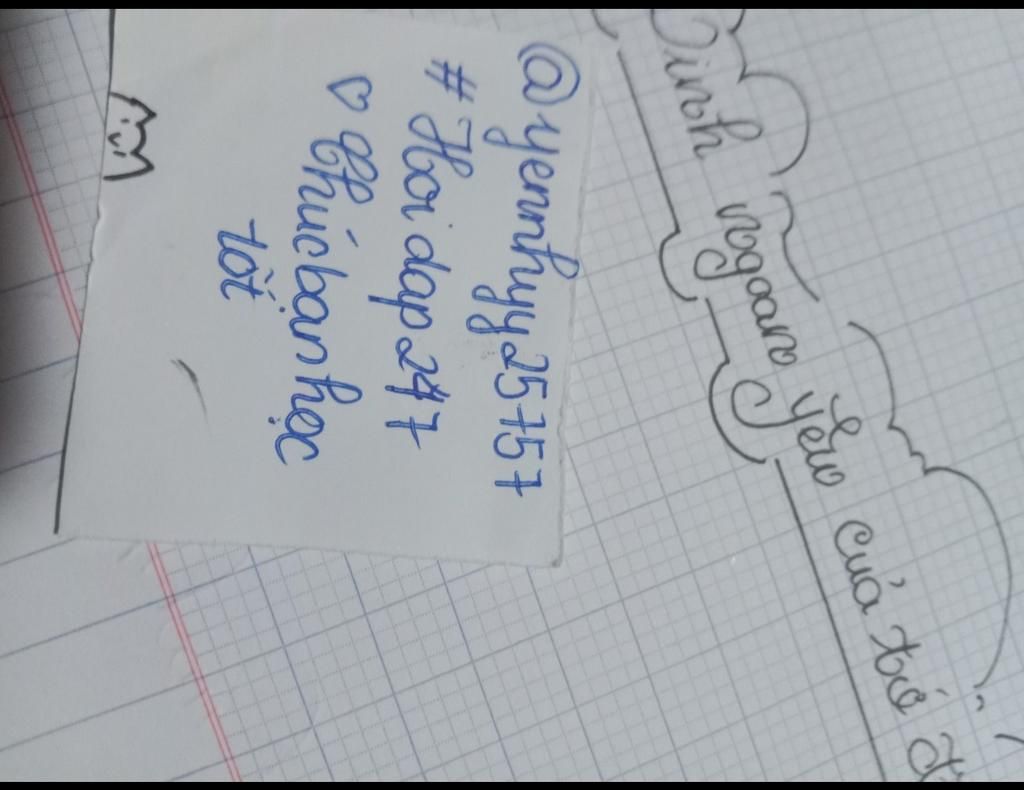 @yennhyy25757
# Hoi dap 247
♡ Chúc bạn học
tốt
Dinh ngoan yêu của tớ